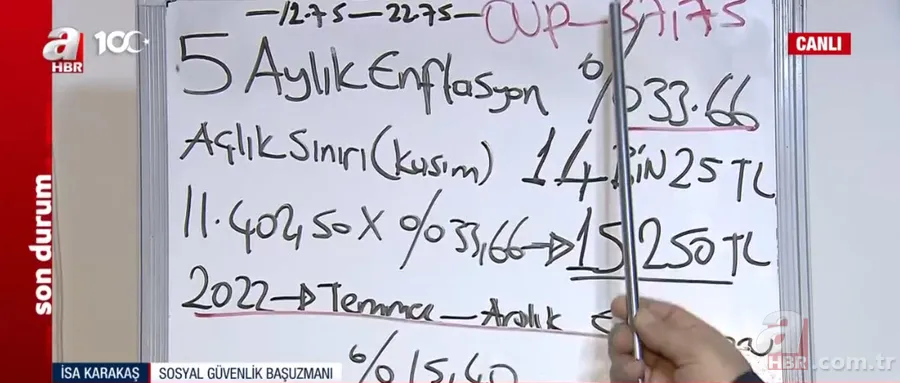 —1275—2275—
37,75
a HBR 100
CANLI
5 Aylık Enflasyon %33.66
Açlık Sınırı (Kasım) 14 BİN 25 TL
11.402,50 X %33,66→15250 TL
2022→Temmuz—Aralık
%15,40
son durum
a HBR.com.tr
İSA KARAKAŞ SOSYAL GÜVENLİK BAŞUZMANI